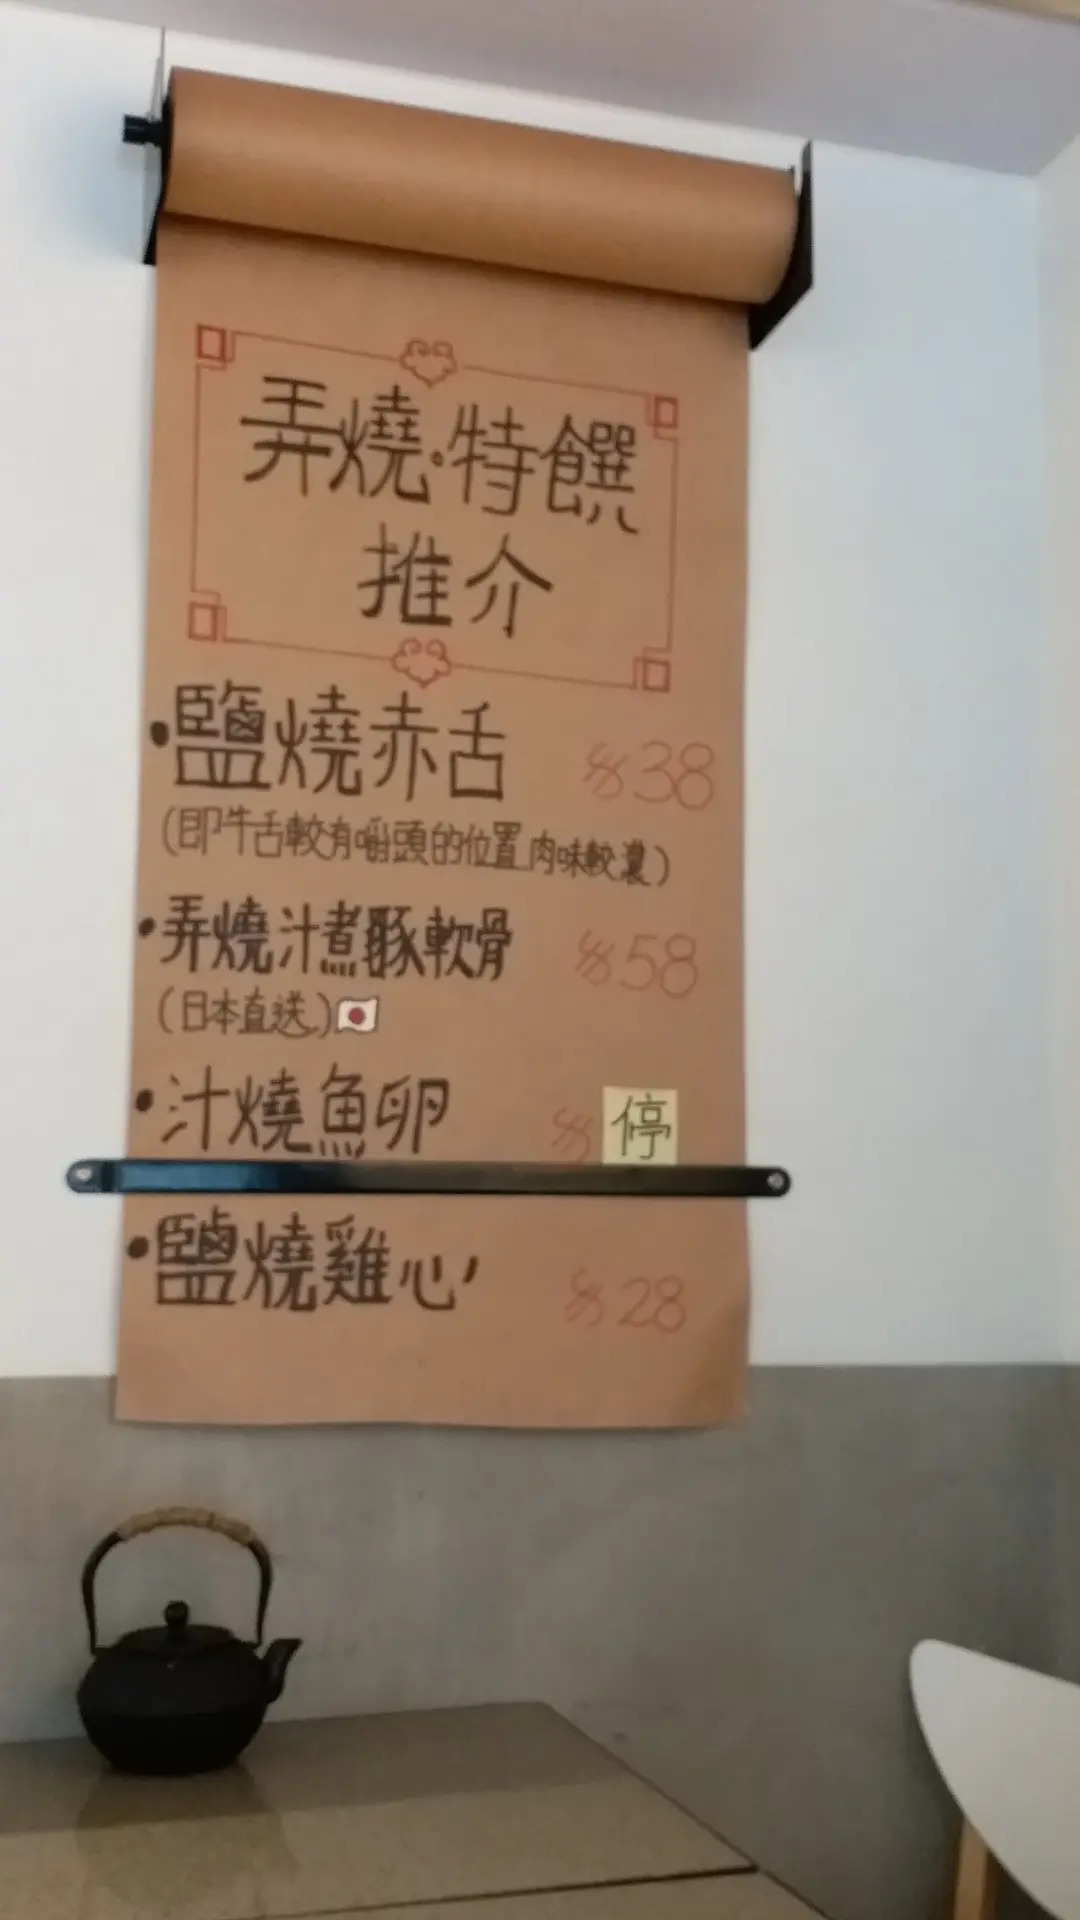 弄燒·特饌
推介
•鹽燒赤舌 $38
(即牛舌較有嚼頭的位置,肉味較濃)
•弄燒汁煮豚軟骨 $58
(日本直送)
•汁燒魚卵 $ 停
•鹽燒雞心 $28